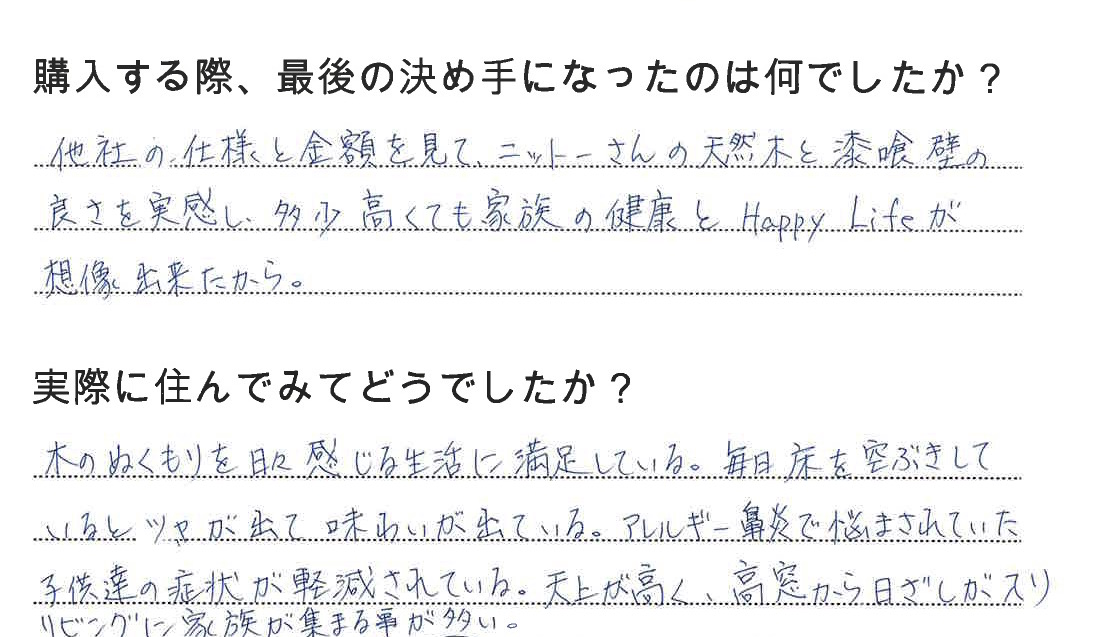 購入する際、最後の決め手になったのは何でしたか？
他社の仕様と金額を見て、ニットーさんの天然木と漆喰壁の
良さを実感し、多少高くても家族の健康とHappy Lifeが
想像出来たから。
実際に住んでみてどうでしたか？
木のぬくもりを日々感じる生活に満足している。毎日床を空ぶきして
いるとツヤが出て味わいが出ている。アレルギー鼻炎で悩まされていた
子供達の症状が軽減されている。天上が高く、高窓から日ざしが入り
リビングに家族が集まる事が多い。